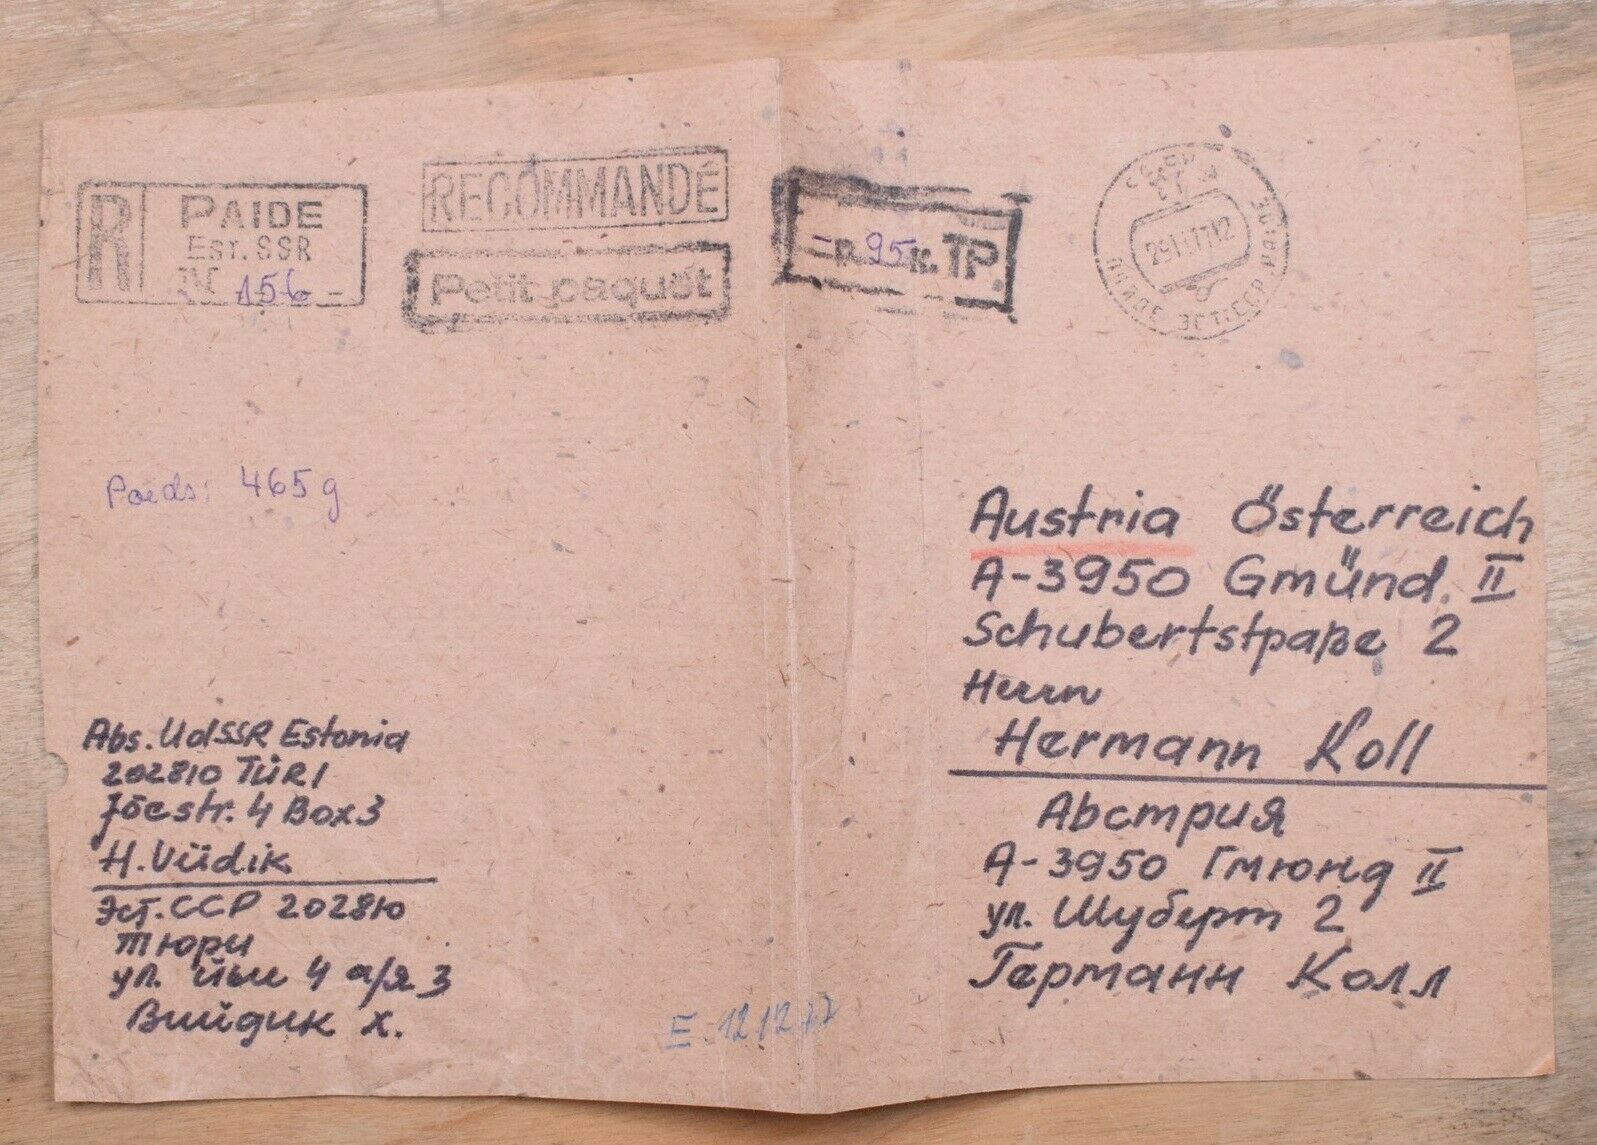 R
PAIDE
EST. SSR
N 156
RECOMMANDÉ
Petit paquet
= R. 95 K. TP.
СССР
29 1177 12
ПАЙДЕ ЭСТ.ССР PAIDE
Poids: 465 g
Austria Österreich
A-3950 Gmünd. II
Schubertstpaße 2
Herrn
Hermann Koll
Австрия
А-3950 Гмюнд II
ул. Шуберт 2
Германн Колл
Abs. UdSSR Estonia
202810 TÜRI
Jõestr. 4 Box 3
H. Viidik
Эст. ССР 202810
Тюри
ул. Йыи 4 а/я 3
Вийдик Х.
E. 12/12 77